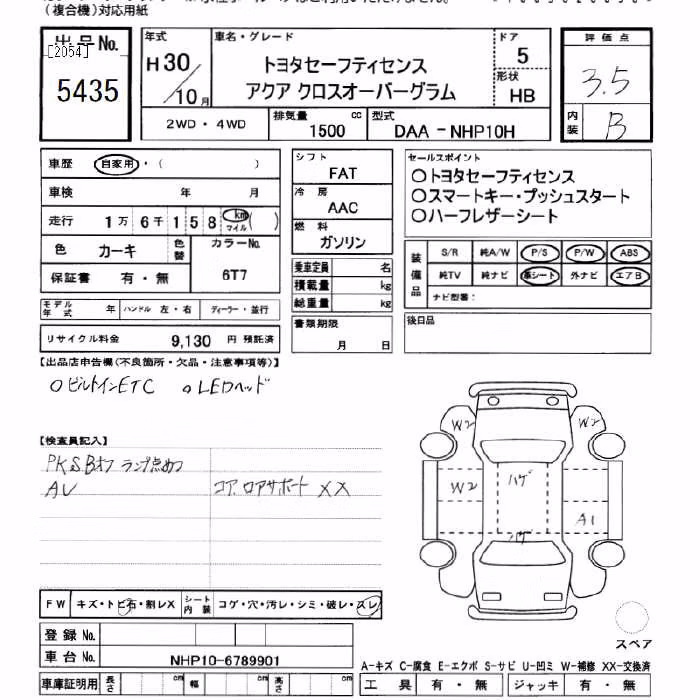 (複合機)対応用紙
出品No.
[2054]
5435
年式
H30/10月
車名・グレード
トヨタセーフティセンス
アクア クロスオーバーグラム
ドア
5
形状
HB
2WD・4WD
排気量
1500 cc
型式
DAA-NHP10H
評価点
3.5
内装
B
車歴 自家用・( )
車検 年 月
走行 1万6千158 km マイル( )
色 カーキ 色替
カラーNo.
6T7
保証書 有・無
モデル年式 年 ハンドル 左・右 ディーラー・並行
リサイクル料金 9,130 円 預託済
シフト
FAT
冷房
AAC
燃料
ガソリン
乗車定員 名
積載量 kg
総重量 kg
書類期限
月 日
セールスポイント
○トヨタセーフティセンス
○スマートキー・プッシュスタート
○ハーフレザーシート
装備品
S/R 純A/W P/S P/W ABS
純TV 純ナビ 革シート 外ナビ エアB
ナビ型番:
後日品
【出品店申告欄(不良箇所・欠品・注意事項等)】
○ビルトインETC ○LEDヘッド
【検査員記入】
PKSBオフ ランプ点めつ
AV コア.ロアサポート XX
W2 W2
W2 ハゲ
A1
ハゲ
FW キズ・トビ石・割レX シート内装 コゲ・穴・汚レ・シミ・破レ・スレ
登録No.
車台No. NHP10-6789901
車庫証明用 長さ cm 幅 cm 高さ cm
スペア
A-キズ C-腐食 E-エクボ S-サビ U-凹ミ W-補修 XX-交換済
工具 有・無 ジャッキ 有・無